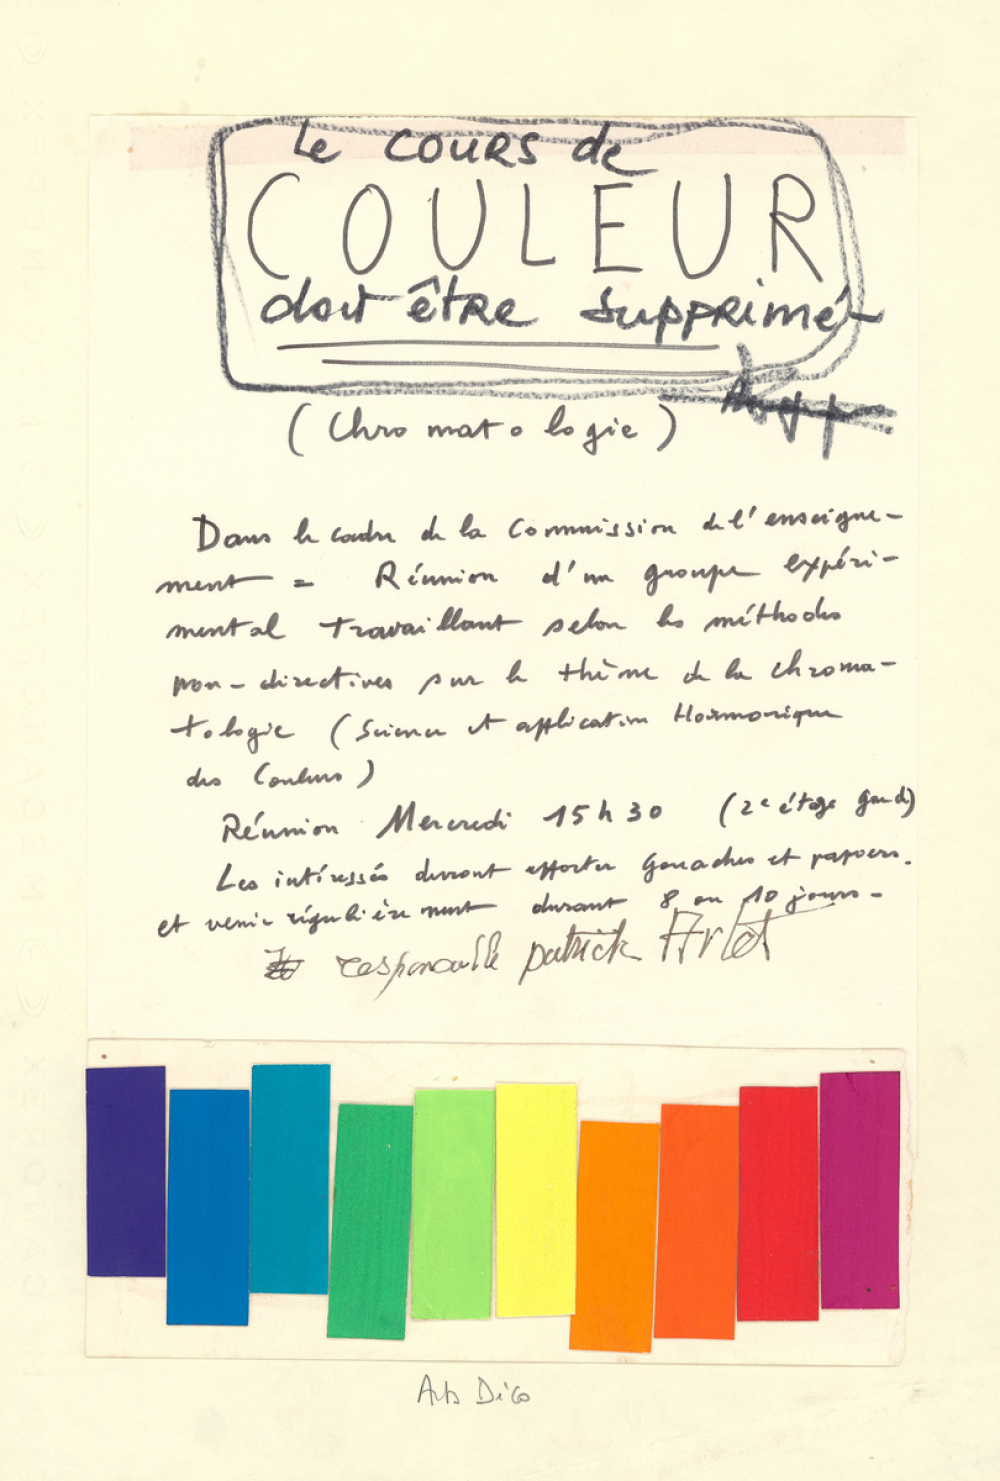 Le COURS de
COULEUR
doit être supprimé
(Chromatologie)
Dans le cadre de la Commission de l'enseigne-
ment = Réunion d'un groupe expéri-
mental travaillant selon les méthodes
non-directives sur le thème de la chroma-
tologie (Science et application Harmonique
des Couleurs)
Réunion Mercredi 15 h 30 (2e étage
Les intéressés devront apporter gouaches et papiers.
et venir régulièrement durant 8 ou 10 jours-
responsable patrick Arlet
Arts Déco